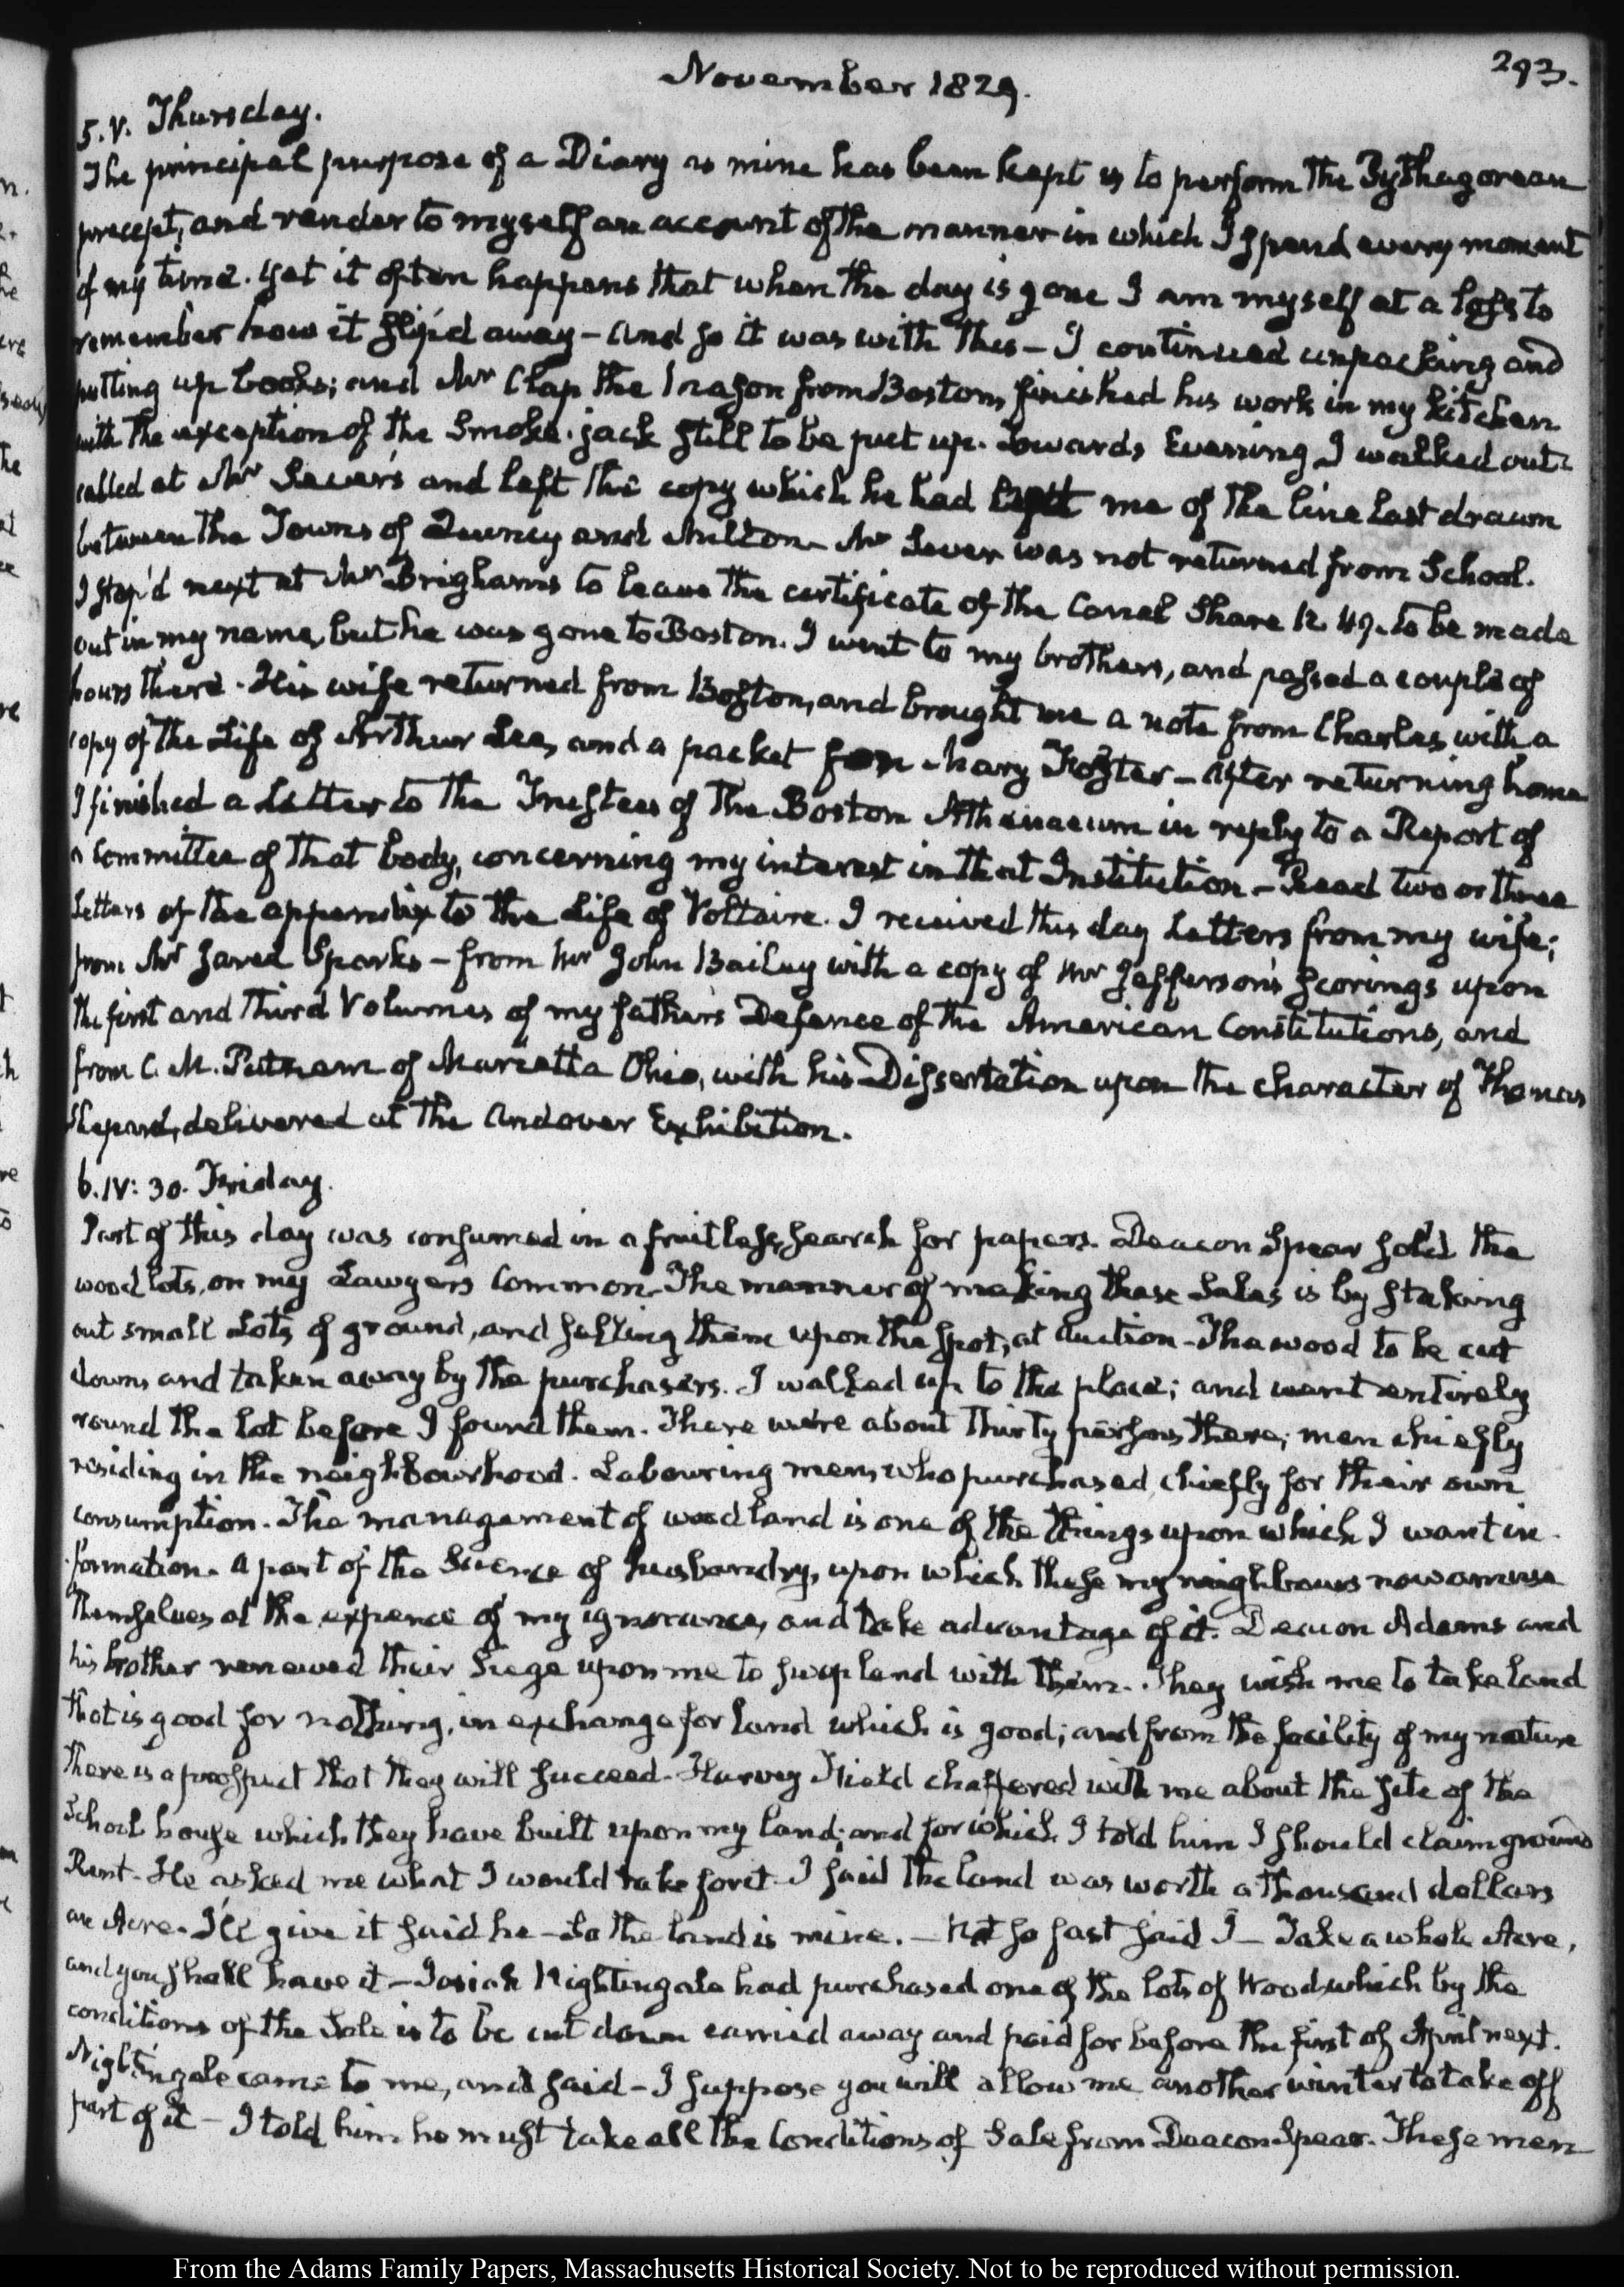 November 1829.
293.
5. V. Thursday.
The principal purpose of a Diary as mine has been kept is to perform the Pythagorean
precept, and render to myself an account of the manner in which I spend every moment
of my time. Yet it often happens that when the day is gone I am myself at a loss to
remember how it slip'd away — and so it was with this — I continued unpacking and
putting up books; and Mr Clap the mason from Boston, finished his work in my kitchen
with the exception of the Smoke-jack still to be put up. Towards Evening I walked out.
called at Mr Sever's and left the copy which he had me of the line last drawn
between the Towns of Quincy and Milton — Mr Sever was not returned from School.
I stop'd next at Mr Brigham's to leave the certificate of the Canal Share N. 49. to be made
out in my name, but he was gone to Boston. I went to my brothers, and passed a couple of
hours there. His wife returned from Boston, and brought me a note from Charles with a
copy of the Life of Arthur Lee, and a packet for Mary Foster — After returning home
I finished a Letter to the Trustees of the Boston Athenaeum in reply to a Report of
a Committee of that body, concerning my interest in that Institution — Read two or three
Letters of the appendix to the Life of Voltaire. I received this day Letters from my wife;
from Mr Jared Sparks — from Mr John Bailey with a copy of Mr Jefferson's scorings upon
the first and third Volumes of my father's Defence of the American Constitutions, and
from C. M. Putnam of Marietta Ohio, with his Dissertation upon the character of Thomas
Shepard, delivered at the Andover Exhibition.
6. IV: 30. Friday.
Part of this day was consumed in a fruitless search for papers. Deacon Spear sold the
wood lots, on my Lawyers Common. The manner of making these Sales is by staking
out small Lots of ground, and selling them upon the spot, at Auction — The wood to be cut
down, and taken away by the purchasers. I walked up to the place; and went entirely
round the lot before I found them. There were about thirty persons there; men chiefly
residing in the neighbourhood. Labouring men, who purchased, chiefly for their own
consumption. The management of wood land is one of the things upon which I want in-
-formation. A part of the Science of husbandry, upon which these my neighbours now amuse
themselves at the expence of my ignorance, and take advantage of it. Deacon Adams and
his brother renewed their Siege upon me to swap land with them. They wish me to take land
that is good for nothing, in exchange for land which is good; and from the facility of my nature
there is a prospect that they will succeed — Harvey Field chaffered with me about the site of the
School house which they have built upon my land; and for which I told him I should claim ground
Rent. He asked me what I would take for it. I said the land was worth a thousand dollars
an Acre. I'll give it said he — So the land is mine. — Not so fast said I — Take a whole Acre,
and you shall have it — Josiah Nightingale had purchased one of the lots of Wood, which by the
conditions of the Sale is to be cut down carried away and paid for before the first of April next.
Nightingale came to me, and said — I suppose you will allow me another winter to take off
part of it — I told him he must take all the Conditions of Sale from Deacon Spear. These men
From the Adams Family Papers, Massachusetts Historical Society. Not to be reproduced without permission.